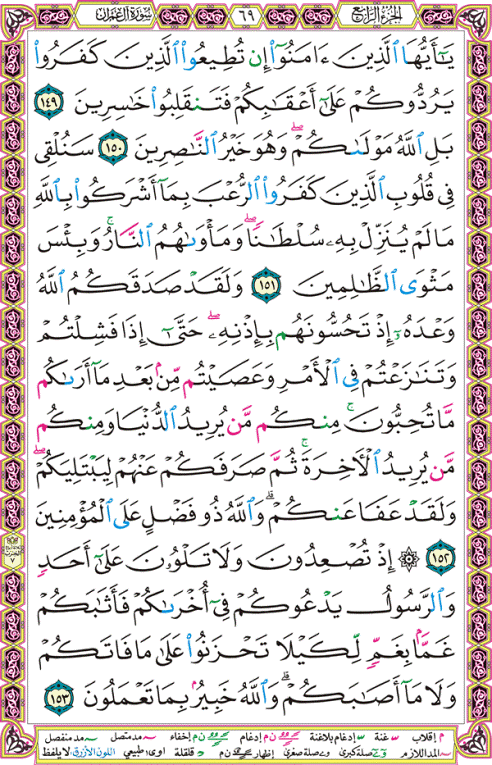 الجزء الرابع ٦٩ سورة آل عمران
يَٰٓأَيُّهَا ٱلَّذِينَ ءَامَنُوٓا۟ إِن تُطِيعُوا۟ ٱلَّذِينَ كَفَرُوا۟
يَرُدُّوكُمْ عَلَىٰٓ أَعْقَٰبِكُمْ فَتَنقَلِبُوا۟ خَٰسِرِينَ ١٤٩
بَلِ ٱللَّهُ مَوْلَىٰكُمْ ۖ وَهُوَ خَيْرُ ٱلنَّٰصِرِينَ ١٥٠ سَنُلْقِى
فِى قُلُوبِ ٱلَّذِينَ كَفَرُوا۟ ٱلرُّعْبَ بِمَآ أَشْرَكُوا۟ بِٱللَّهِ
مَا لَمْ يُنَزِّلْ بِهِۦ سُلْطَٰنًا ۖ وَمَأْوَىٰهُمُ ٱلنَّارُ ۚ وَبِئْسَ
مَثْوَى ٱلظَّٰلِمِينَ ١٥١ وَلَقَدْ صَدَقَكُمُ ٱللَّهُ
وَعْدَهُۥٓ إِذْ تَحُسُّونَهُم بِإِذْنِهِۦ ۖ حَتَّىٰٓ إِذَا فَشِلْتُمْ
وَتَنَٰزَعْتُمْ فِى ٱلْأَمْرِ وَعَصَيْتُم مِّنۢ بَعْدِ مَآ أَرَىٰكُم
مَّا تُحِبُّونَ ۚ مِنكُم مَّن يُرِيدُ ٱلدُّنْيَا وَمِنكُم
مَّن يُرِيدُ ٱلْءَاخِرَةَ ۚ ثُمَّ صَرَفَكُمْ عَنْهُمْ لِيَبْتَلِيَكُمْ ۖ
وَلَقَدْ عَفَا عَنكُمْ ۗ وَٱللَّهُ ذُو فَضْلٍ عَلَى ٱلْمُؤْمِنِينَ
١٥٢ ۞ إِذْ تُصْعِدُونَ وَلَا تَلْوُۥنَ عَلَىٰٓ أَحَدٍ
وَٱلرَّسُولُ يَدْعُوكُمْ فِىٓ أُخْرَىٰكُمْ فَأَثَٰبَكُمْ
غَمًّۢا بِغَمٍّ لِّكَيْلَا تَحْزَنُوا۟ عَلَىٰ مَا فَاتَكُمْ
وَلَا مَآ أَصَٰبَكُمْ ۗ وَٱللَّهُ خَبِيرٌۢ بِمَا تَعْمَلُونَ ١٥٣